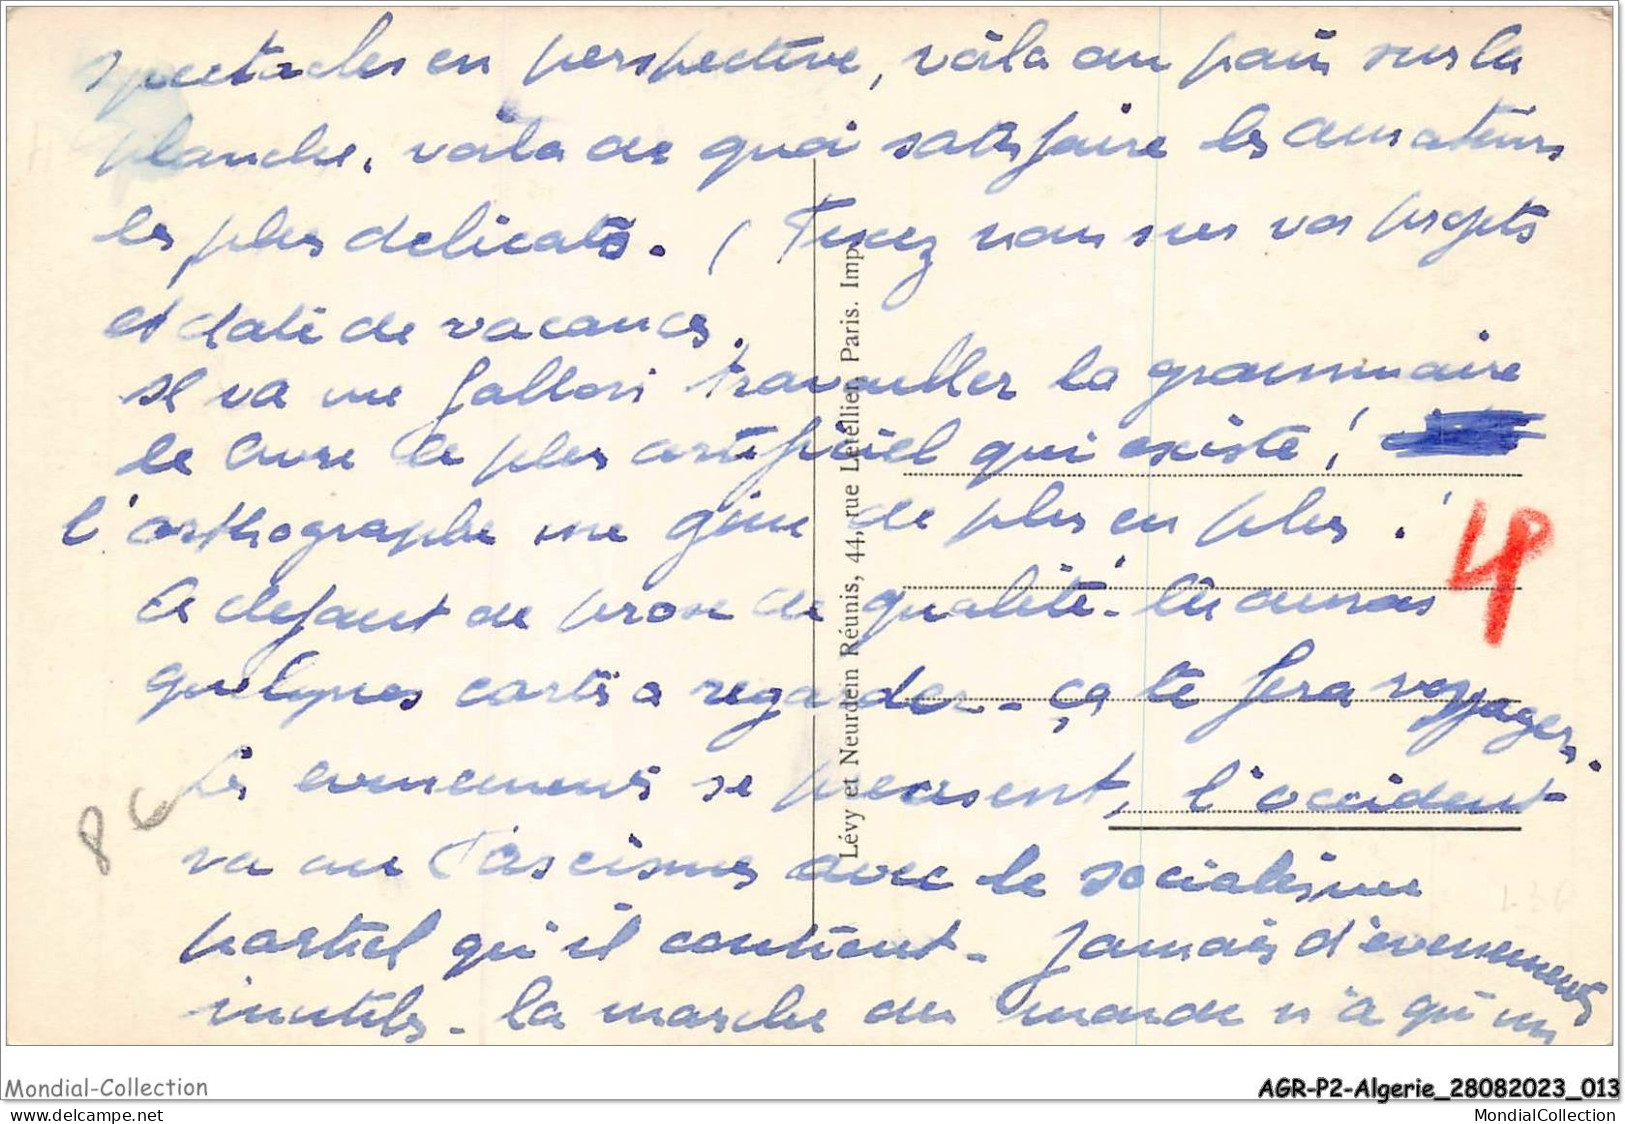 spectacles en perspective, voila du pain sur la
planche, voila de quoi satisfaire les amateurs
les plus delicats. ( Fixez nous sur vos projets
et date de vacances.
Il va me falloir travailler la grammaire
le livre le plus artificiel qui existe!
l'orthographe me gène de plus en plus!
A defaut de prose de qualité - tu auras
quelques cartes a regarder - ça te fera voyager.
Les evenements se precisent, l'occident
va au Fascisme avec le socialisme
partiel qu'il contient - Jamais d'evenements
inutiles - la marche du monde n'a qu'un
LP
Lévy et Neurdein Réunis, 44, rue Letellier, Paris. Imp.
Mondial-Collection
AGR-P2-Algerie_28082023_013
MondialCollection
MondialCollection